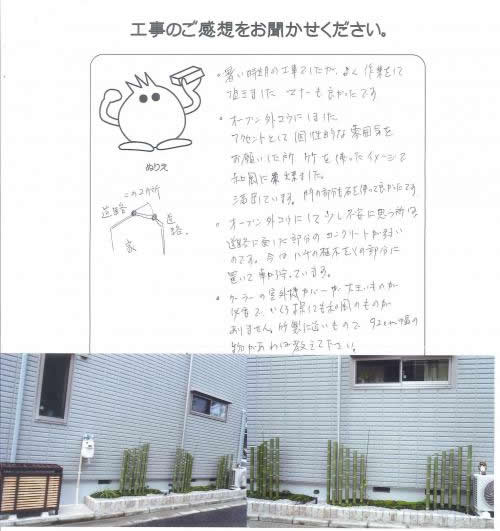 工事のご感想をお聞かせください。
・暑い時期の工事でしたが、よく作業をして
頂きました マナーも良かったです
・オープン外コウにしました
アクセントとして個性的な雰囲気を
お願いした所 竹を使ったイメージで
和風に
満足しています。門の部分も石を使って良かったです
・オープン外コウにして少し不安に思う所は、
道路に面した部分のコンクリートが
のです。今は ハチの植木をその部分に
置いて 車が 。
・クーラーの室外機カバーが 大きいものが
必要で、いくら探しても和風のものが
ありません。竹製に近いもので 92cm幅の
物があれば教えて下さい。
ぬりえ
この2ヶ所
道路
道路
家